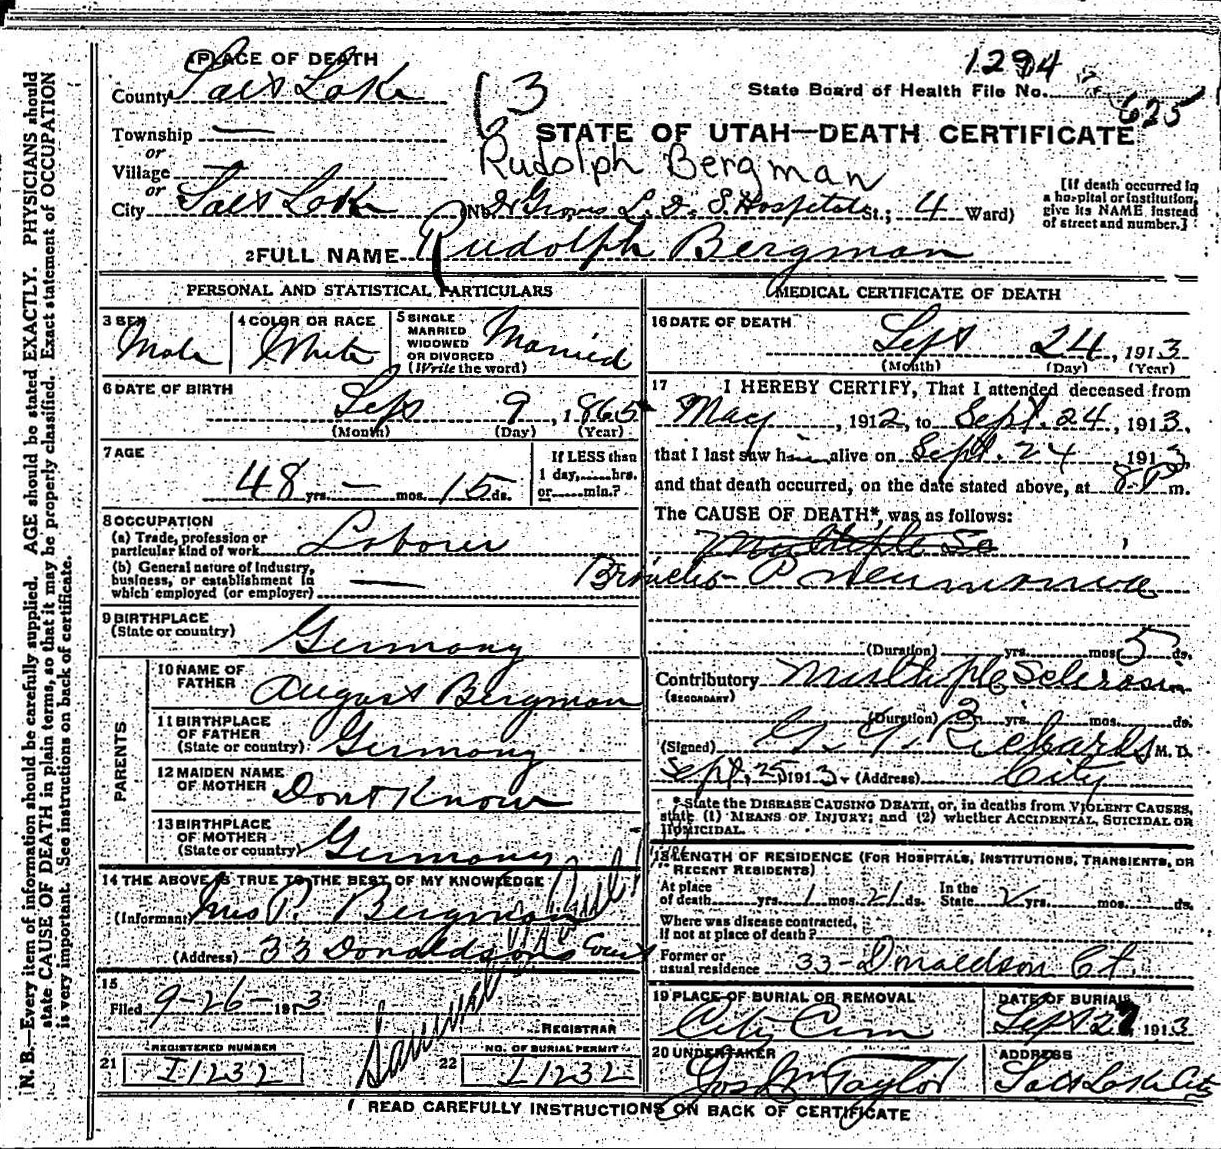 1294
1 PLACE OF DEATH
County Salt Lake
13
State Board of Health File No. 625
Township —
or
STATE OF UTAH—DEATH CERTIFICATE
Village
Rudolph Bergman
or
[If death occurred in a hospital or institution, give its NAME instead of street and number.]
City Salt Lake (No. Dr Groves L. D. S. Hospital St.; 4 Ward)
2 FULL NAME Rudolph Bergman
PERSONAL AND STATISTICAL PARTICULARS
3 SEX Male
4 COLOR OR RACE White
5 SINGLE MARRIED WIDOWED OR DIVORCED (Write the word) Married
6 DATE OF BIRTH Sept 9, 1865
(Month) (Day) (Year)
7 AGE 48 yrs. — mos. 15 ds.
If LESS than 1 day,......hrs. or......min.?
8 OCCUPATION
(a) Trade, profession or particular kind of work Laborer
(b) General nature of Industry, business, or establishment in which employed (or employer) —
9 BIRTHPLACE (State or country) Germany
PARENTS
10 NAME OF FATHER August Bergman
11 BIRTHPLACE OF FATHER (State or country) Germany
12 MAIDEN NAME OF MOTHER Dont Know
13 BIRTHPLACE OF MOTHER (State or country) Germany
14 THE ABOVE IS TRUE TO THE BEST OF MY KNOWLEDGE
(Informant Mrs P. Bergman
(Address) 33 Donaldson's Court
15 Filed 9-26-1913
REGISTRAR
REGISTERED NUMBER
21 I1232
NO. OF BURIAL PERMIT
22 I1232
MEDICAL CERTIFICATE OF DEATH
16 DATE OF DEATH Sept 24, 1913
(Month) (Day) (Year)
17 I HEREBY CERTIFY, That I attended deceased from
May, 1912, to Sept. 24, 1913,
that I last saw him alive on Sept. 24 1913,
and that death occurred, on the date stated above, at 8 P m.
The CAUSE OF DEATH*, was as follows:
Multiple Sc
Broncho-Pneumonia
(Duration) yrs. mos. 5 ds.
Contributory Multiple Sclerosis
(SECONDARY)
(Duration) 3 yrs. mos. ds.
(Signed) G. G. Richards M. D.
Sept. 25 1913. (Address) City
* State the DISEASE CAUSING DEATH, or, in deaths from VIOLENT CAUSES, state (1) MEANS OF INJURY; and (2) whether ACCIDENTAL, SUICIDAL OR HOMICIDAL.
18 LENGTH OF RESIDENCE (FOR HOSPITALS, INSTITUTIONS, TRANSIENTS, OR RECENT RESIDENTS)
At place of death yrs. 1 mos. 21 ds. In the State 2 yrs. mos. ds.
Where was disease contracted, If not at place of death?
Former or usual residence 33-Donaldson Ct.
19 PLACE OF BURIAL OR REMOVAL City Cem
DATE OF BURIAL Sept 27 1913
20 UNDERTAKER Jos Wm Taylor
ADDRESS Salt Lake City
READ CAREFULLY INSTRUCTIONS ON BACK OF CERTIFICATE
N. B.—Every item of information should be carefully supplied. AGE should be stated EXACTLY. PHYSICIANS should
state CAUSE OF DEATH in plain terms, so that it may be properly classified. Exact statement of OCCUPATION
is very important. See instructions on back of certificate.